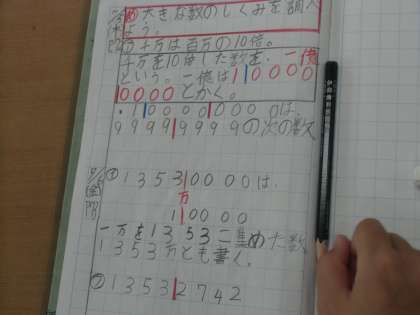 め 大きな数のしくみを調べ
よう。
千万は百万の10倍。
千万を10倍した数を、一億
という。一億は1|0000
0000とかく。
・1|0000|0000は、
9999|9999の次の数
① 1353|0000は、
万
1|0000
一万を1353こ集めた数
1353万とも書く。
② 1353|2742